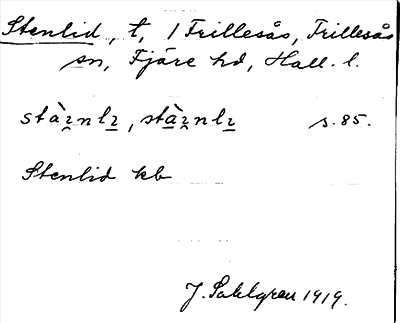 Stenlid, t, 1 Frillesås, Frillesås
sn, Fjäre hd, Hall. l.
s. 85.
Stenlid kb
J. Sahlgren 1919.